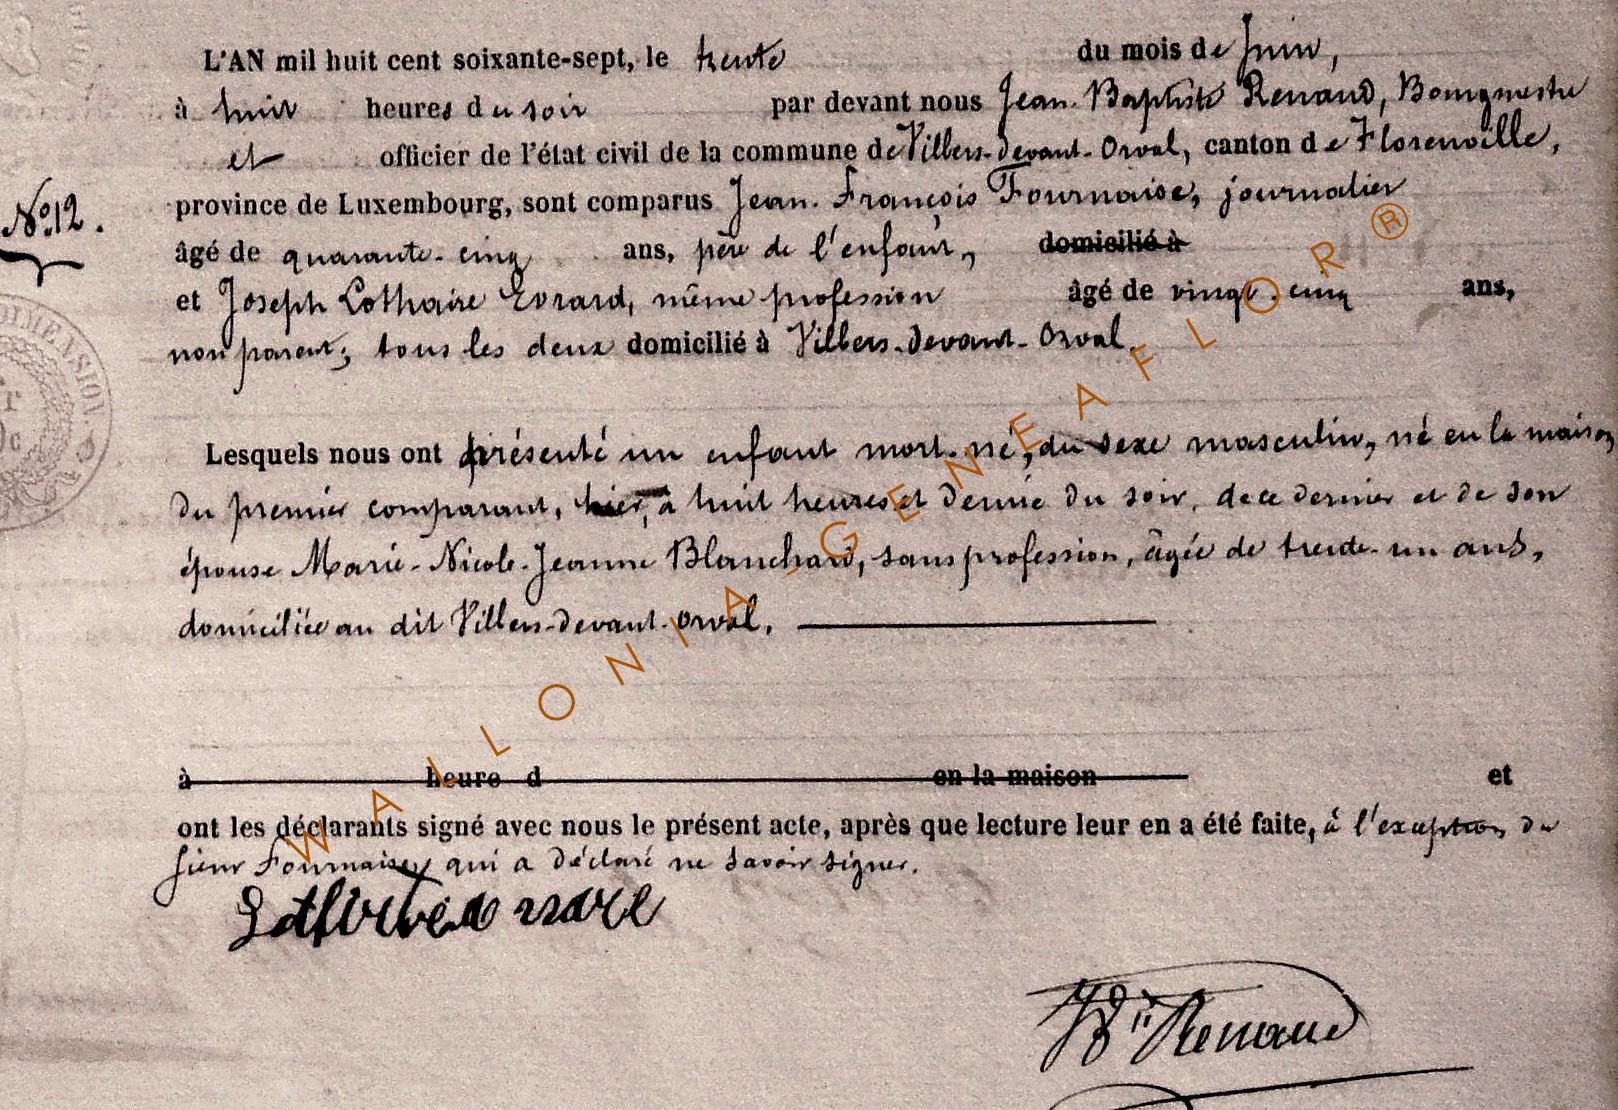 L'AN mil huit cent soixante-sept, le trente du mois de Juin,
à huit heures du soir par devant nous Jean-Baptiste Renaud, Bourgmestre
et officier de l'état civil de la commune de Villers-devant-Orval, canton de Florenville,
province de Luxembourg, sont comparus Jean-François Fournaise, journalier
N°12.
âgé de quarante-cinq ans, père de l'enfant, domicilié à
et Joseph Lothaire Evrard, même profession âgé de vingt-cinq ans,
non parent; tous les deux domicilié à Villers-devant-Orval.
Lesquels nous ont présenté un enfant mort-né, du sexe masculin, né en la maison
du premier comparant, hier, à huit heures et demie du soir, de ce dernier et de son
épouse Marie-Nicole-Jeanne Blanchard, sans profession, âgée de trente-un ans,
domiciliée au dit Villers-devant-Orval.
à heure d en la maison et
ont les déclarants signé avec nous le présent acte, après que lecture leur en a été faite, à l'exception du
sieur Fournaise, qui a déclaré ne savoir signer.
JBte Renaud
WALLONIA-GENEAFLOR®